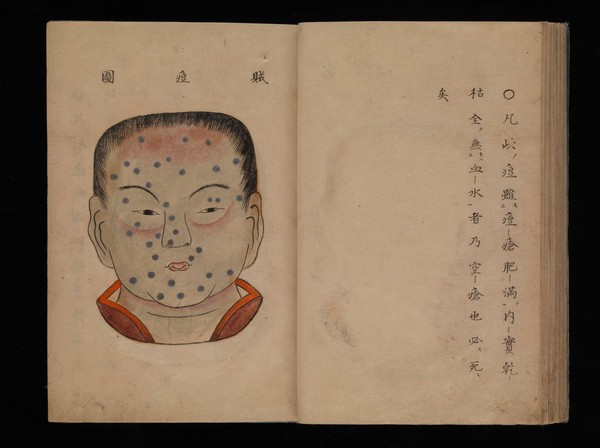 〇凡此痘雖痘瘡肥滿内實乾
枯全無血水者乃空瘡也必死
矣
賊痘圖